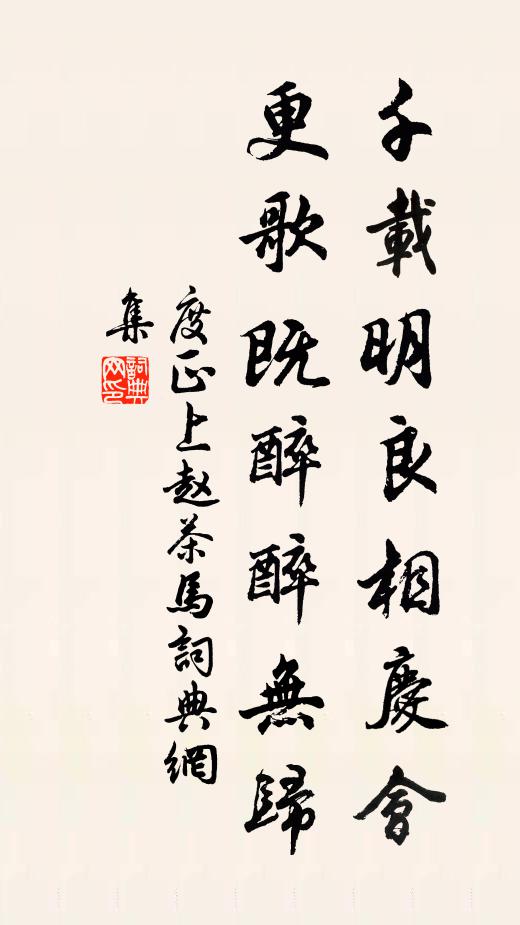 千載明良相慶會
更歌既醉醉無歸
度正上趙茶馬詞典網
集
詞典
网印